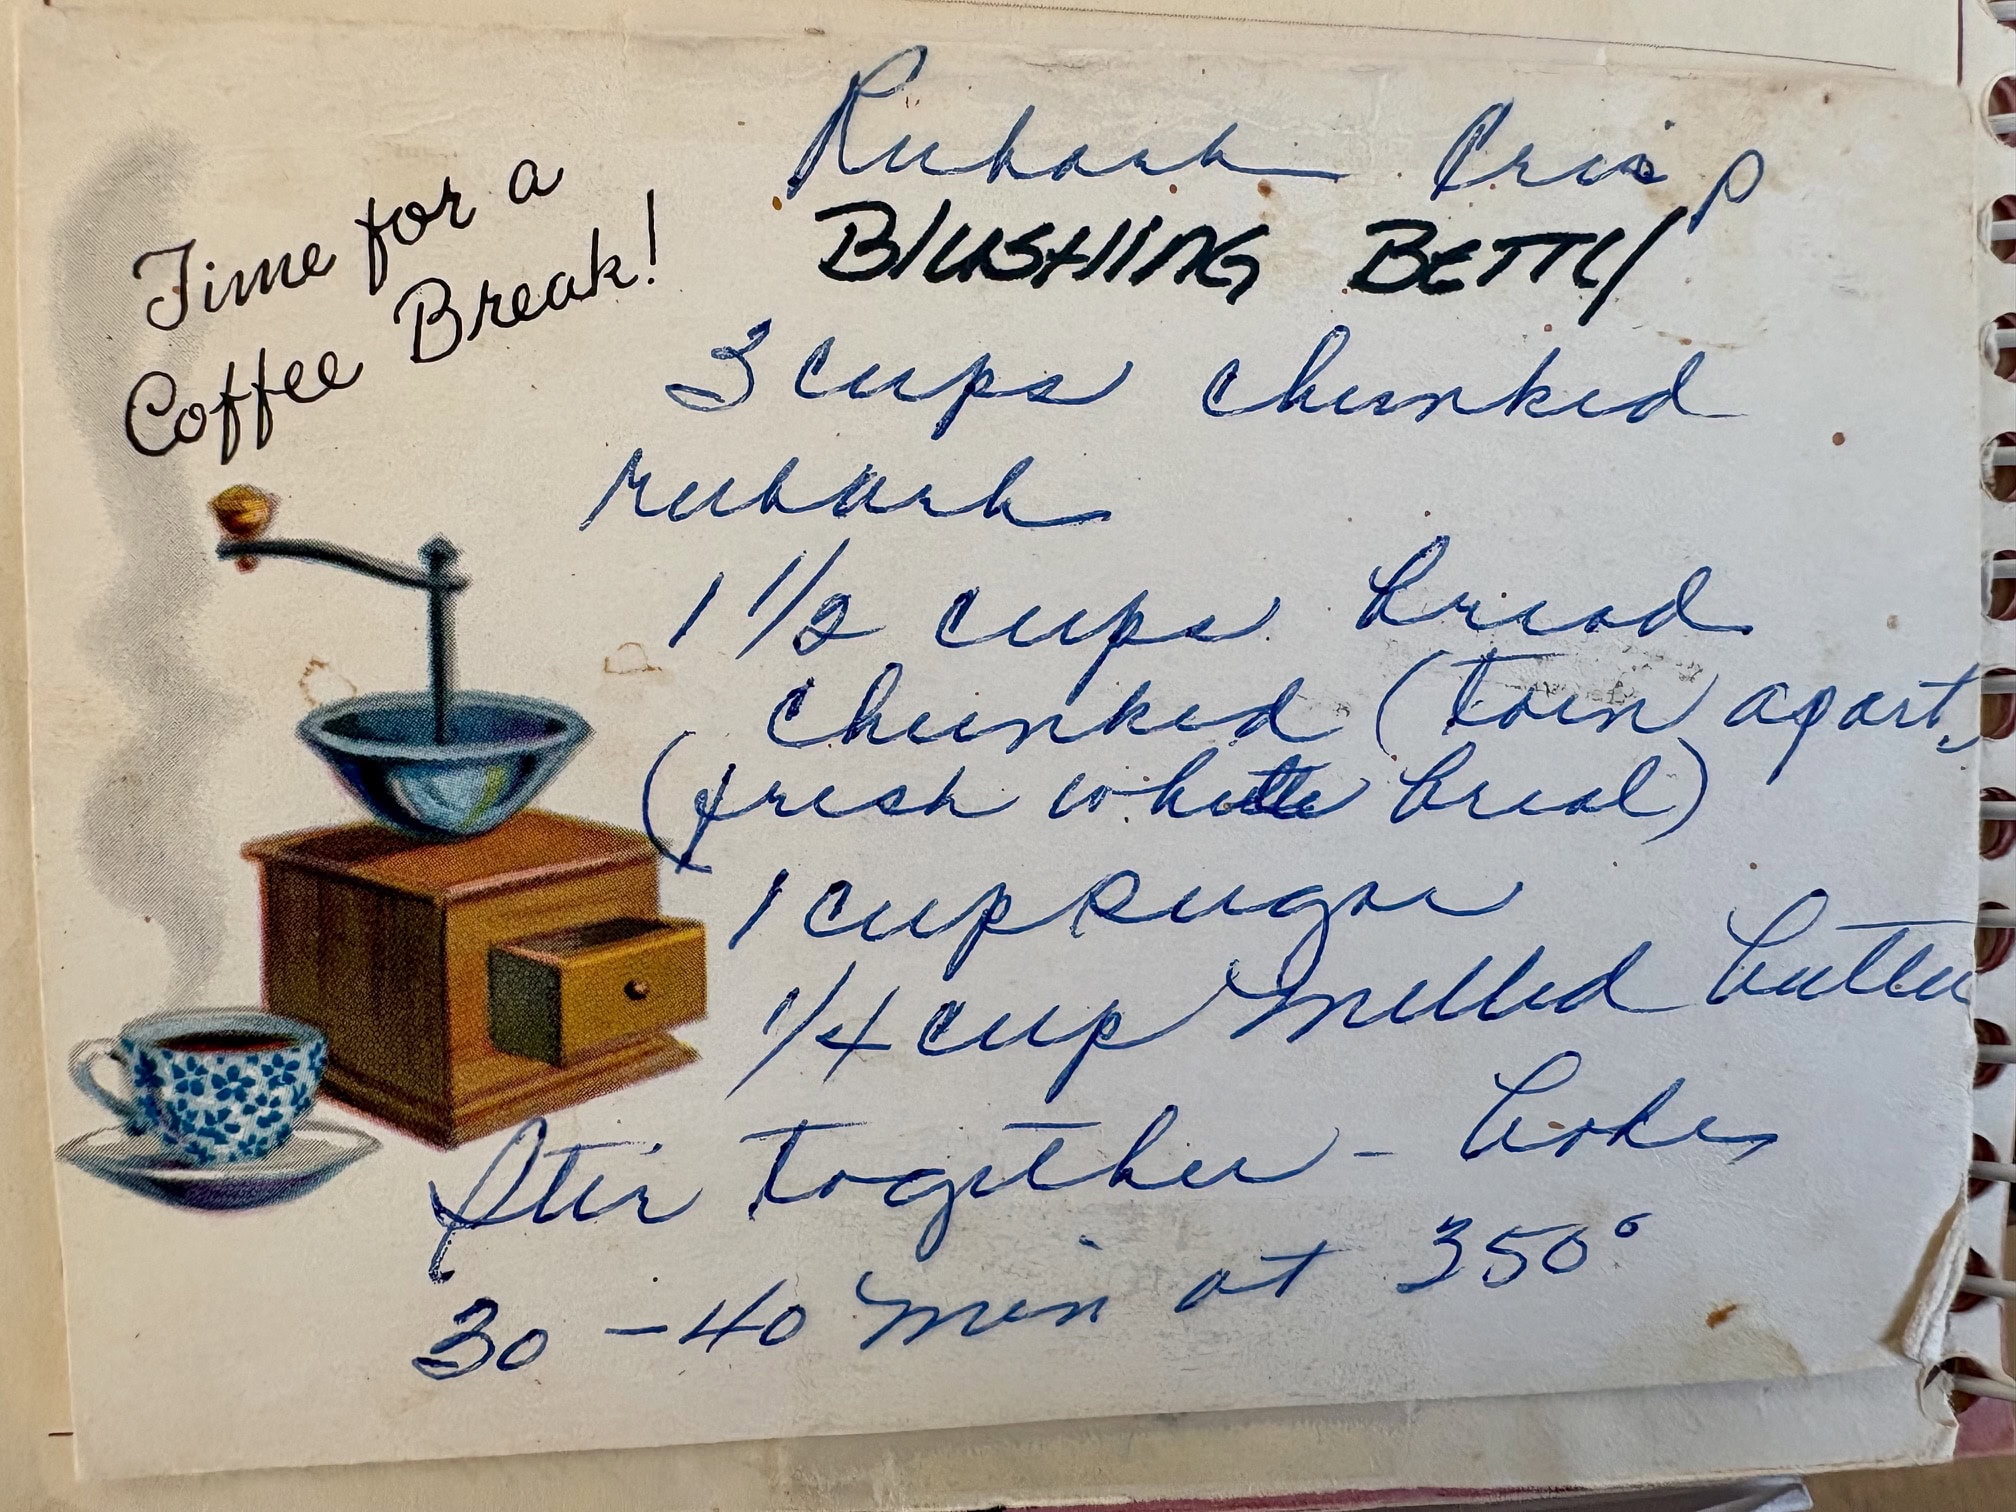 Time for a
Coffee Break!
Rubarb Crisp
BlUSHING BETTY
3 cups chunked
rubarb
1 1/2 cups bread
chunked (torn apart,
(fresh white bread)
1 cup sugar
1/4 cup melted butter
Stir together - bake
30 - 40 min at 350°